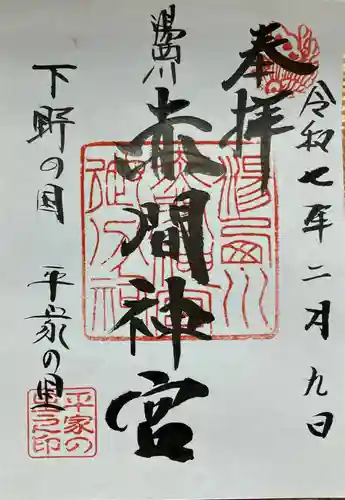 奉拝
令和七年二月九日
湯西川
赤間神宮
下野の国 平家の里
湯西川
平家の
里之印